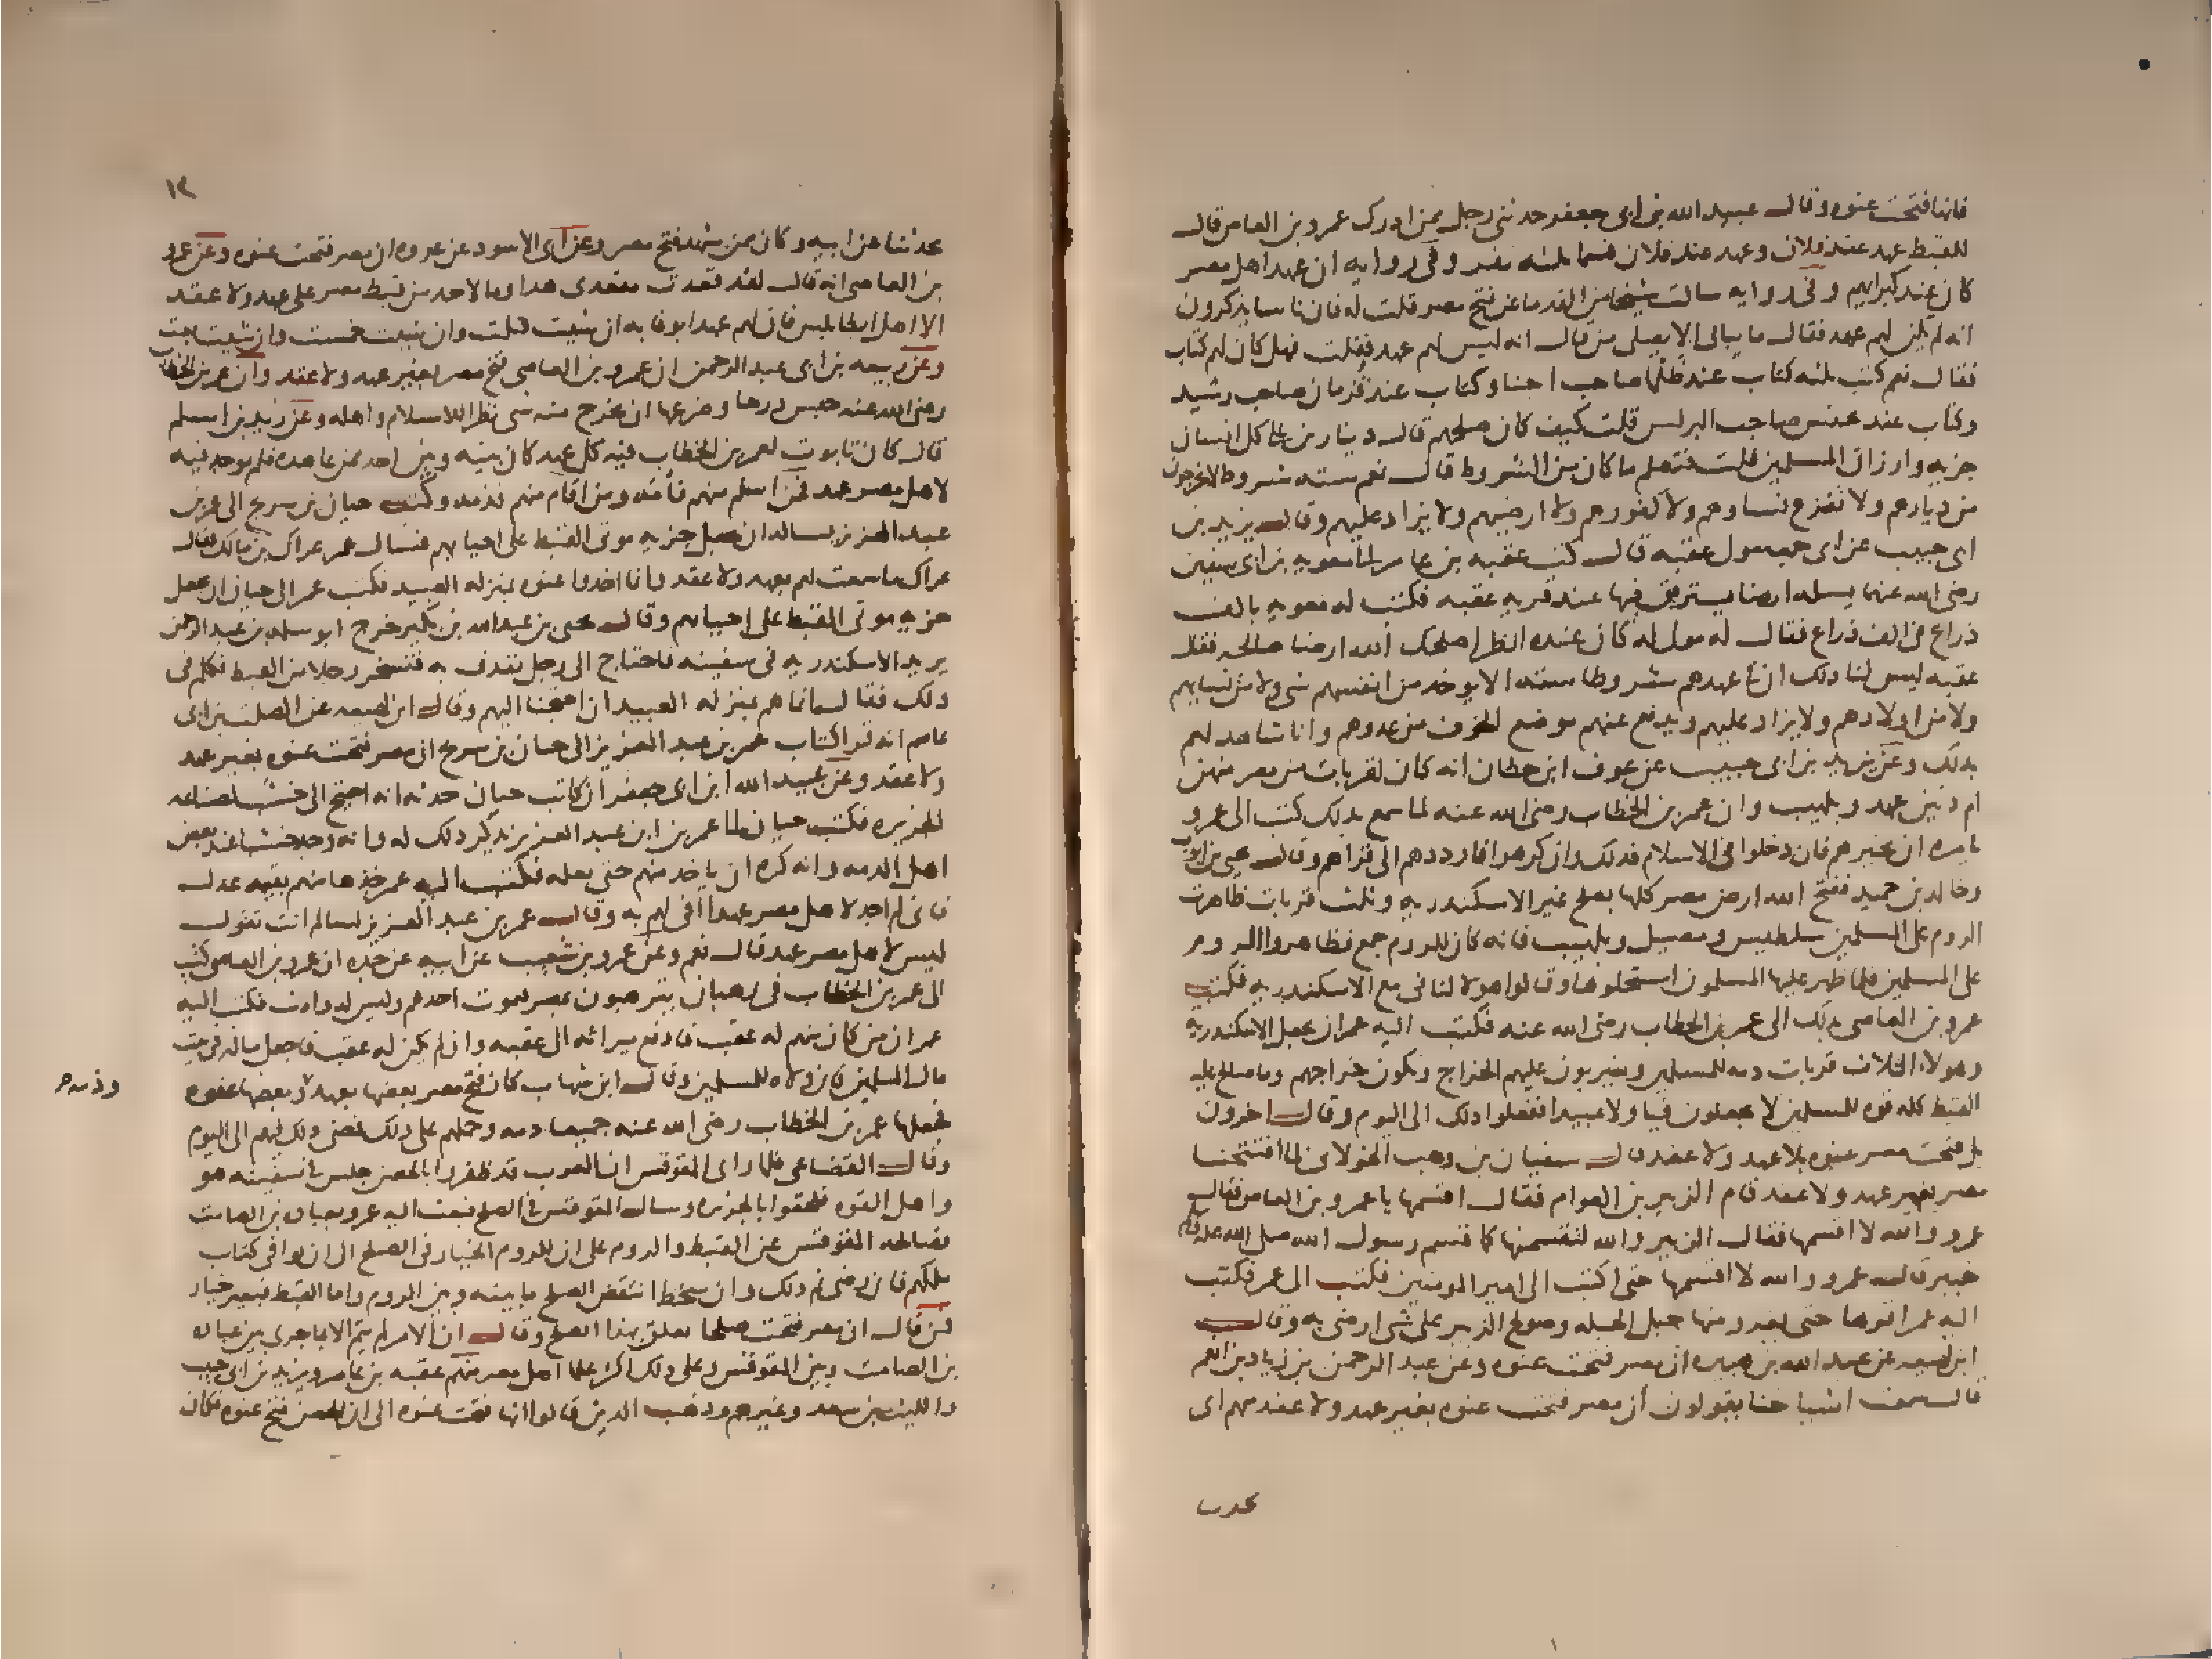 فانها فتحت عنوه وقال عبيد الله بن ابى جعفر حدثنى رجل ممن ادرك عمرو بن العاص قال
للقبط عهد عند فلان وعهد عند فلان فسما ثلثه نفر وفى روايه ان عهد اهل مصر
كان عند كبرايهم وفى روايه سالت شيخا من القدما عن فتح مصر قلت له فان ناسا يذكرون
انه لم يكن لهم عهد فقال ما يبالى الا يصلى من قال انه ليس لهم عهد فقلت فهل كان لهم كتاب
فقال نعم كتب ثلثه كتاب عند طلما صاحب اخنا وكتاب عند قزمان صاحب رشيد
وكتاب عند يحنس صاحب البرلس قلت كيف كان صلحهم قال دينارين على كل انسان
جزيه وارزاق المسلمين قلت فتعلم ما كان من الشروط قال نعم سته شروط لا يخرجون
من ديارهم ولا تنزع نساوهم ولا كنوزهم ولا ارضيهم ولا يزاد عليهم وقال يزيد بن
ابى حبيب عن ابى جمعه مولى عقبه قال كتب عقبه بن عامر الى معويه بن ابى سفين
رضى الله عنهما يسله ارضا يسترفق فيها عند قريه عقبه فكتب له معويه بالف
ذراع فى الف ذراع فقال له مولى له كان عنده انظر اصلحك الله ارضا صالحه فقال
عقبه ليس لنا ذلك ان فى عهدهم شروطا سته الا يوخذ من انفسهم شى ولا من نسايهم
ولا من اولادهم ولا يزاد عليهم ويدفع عنهم موضع الخوف من عدوهم وانا شاهد لهم
بذلك وعن يزيد بن ابى حبيب عن عوف ابن حطان انه كان لقريات من مصر منهن
ام دنين عهد وبلهيب وان عمر بن الخطاب رضى الله عنه لما سمع بذلك كتب الى عمرو
يامره ان يخيرهم فان دخلوا فى الاسلام فذلك وان كرهوا فارددهم الى قراهم وقال يحيى بن ايوب
وخالد بن حميد ففتح الله ارض مصر كلها بصلح غير الاسكندريه وثلث قريات ظاهرت
الروم على المسلمين سلطيس ومصيل وبلهيب فانه كان للروم جمع فظاهروا الروم
على المسلمين فلما ظهر عليها المسلمون استحلوها وقالوا هولا لنا فى مع الاسكندريه فكتب
عمرو بن العاصى بذلك الى عمر بن الخطاب رضى الله عنه فكتب اليه عمر ان يجعل الاسكندريه
وهولاء الثلاث قريات ذمه للمسلمين ويضربون عليهم الخراج ويكون خراجهم وما صالح عليه
القبط كله قوه للمسلمين لا يجعلون فيا ولا عبيدا ففعلوا ذلك الى اليوم وقال اخرون
بل فتحت مصر عنوه بلا عهد ولا عقد قال سفيان بن وهب الخولانى لما افتتحنا
مصر بغير عهد ولا عقد قام الزبير بن العوام فقال اقسمها يا عمرو بن العاص فقال
عمرو والله لا اقسمها فقال الزبير والله لتقسمنها كما قسم رسول الله صلى الله عليه وسلم
خيبر قال عمرو والله لا اقسمها حتى اكتب الى امير المومنين فكتب الى عمر فكتب
اليه عمر اقرها حتى يغزو منها حبل الحبله وصولح الزبير على شى ارضى به وقال
ابن لهيعه عن عبد الله بن هبيره ان مصر فتحت عنوه وعن عبد الرحمن بن زياد بن انعم
قال سمعت اشياخنا يقولون ان مصر فتحت عنوه بغير عهد ولا عقد منهم ابى
يحدث
١٢
يحدثنا عن ابيه وكان ممن شهد فتح مصر وعن ابى الاسود عن عروه ان مصر فتحت عنوه وعن عمرو
بن العاصى انه قال لقد قعدت مقعدى هذا وما لاحد من قبط مصر على عهد ولا عقد
الا اهل انطابلس فان لهم عهد ايوفا به ان شيت قتلت وان شيت خمست وان شيت بعت
وعن ربيعه بن ابى عبد الرحمن ان عمرو بن العاصى فتح مصر بغير عهد ولا عقد وان عمر بن الخطاب
رضى الله عنه حبس درها وضرعها ان يخرج منه شى نظرا للاسلام واهله وعن زيد بن اسلم
قال كان تابوت لعمر بن الخطاب فيه كل عهد كان بينه وبين احد ممن عاهده فلم يوجد فيه
لاهل مصر عهد فمن اسلم منهم فامه ومن اقام منهم فذمه وكتب حيان بن سريج الى عمر بن
عبد العزيز يساله ان يجعل جزيه موتى القبط على احيايهم فسال عمر عراك بن مالك فقال
عراك ما سمعت لهم بعهد ولا عقد وانما اخذوا عنوه بمنزله العبيد فكتب عمر الى حيان ان يجعل
جزيه موتى القبط على احيايهم وقال يحيى بن عبد الله بن بكير خرج ابو سلمه بن عبد الرحمن
يريد الاسكندريه فى سفينه فاحتاج الى رجل يقذف به فتسخر رجلا من القبط فكلم فى
ذلك فقال انما هم بمنزله العبيد ان احتجنا اليهم وقال ابن لهيعه عن الصلت بن ابى
عاصم انه قرا كتاب عمر بن عبد العزيز الى حيان بن سريج ان مصر فتحت عنوه بغير عهد
ولا عقد وعن عبيد الله ابن ابى جعفر ان كاتب حيان حدثه انه احتيج الى خشب لصناعه
الجزيره فكتب حيان الى عمر بن عبد العزيز يذكر ذلك له وانه وجد خشبا عند بعض
اهل الذمه وانه كره ان ياخذ منهم حتى يعلمه فكتب اليه عمر خذها منهم بقيمه عدل
فانى لم اجد لاهل مصر عهدا افى لهم به وقال عمر بن عبد العزيز لسالم انت تقول
ليس لاهل مصر عهد قال نعم وعن عمرو بن شعيب عن ابيه عن جده ان عمرو بن العاصى كتب
الى عمر بن الخطاب فى رهبان يترهبون بمصر فيموت احدهم وليس له وارث فكتب اليه
عمر ان من كان منهم له عقب فادفع ميراثه الى عقبه وان لم يكن له عقب فاجعل ماله فى بيت
مال المسلمين فان ولاه للمسلمين وقال ابن شهاب كان فتح مصر بعضها بعهد وبعضها عنوه
وذمه
فجعلها عمر بن الخطاب رضى الله عنه جميعا ذمه وحملهم على ذلك فمضى ذلك فيهم الى اليوم
وقال القضاعى فلما راى المقوقس ان العرب قد ظفروا بالحصن جلس فى سفينه هو
واهل القوه فلحقوا بالجزيره وسال المقوقس فى الصلح فبعث اليه عمرو بعباده بن الصامت
فصالحه المقوقس عن القبط والروم على ان للروم الخيار فى الصلح الى ان يوافى كتاب
ملكهم فان رضى تم ذلك وان سخط انتقض الصلح ما بينه وبين الروم واما القبط فبغير خيار
فمن قال ان مصر فتحت صلحا تعلق بهذا الصلح وقال ان الامر لم يتم الا بما جرى بين عباده
بن الصامت وبين المقوقس وعلى ذلك اكثر علما اهل مصر منهم عقبه بن عامر ويزيد بن ابى حبيب
والليث بن سعد وغيرهم وذهب الذين قالوا انها فتحت عنوه الى ان الحصن فتح عنوه فكان